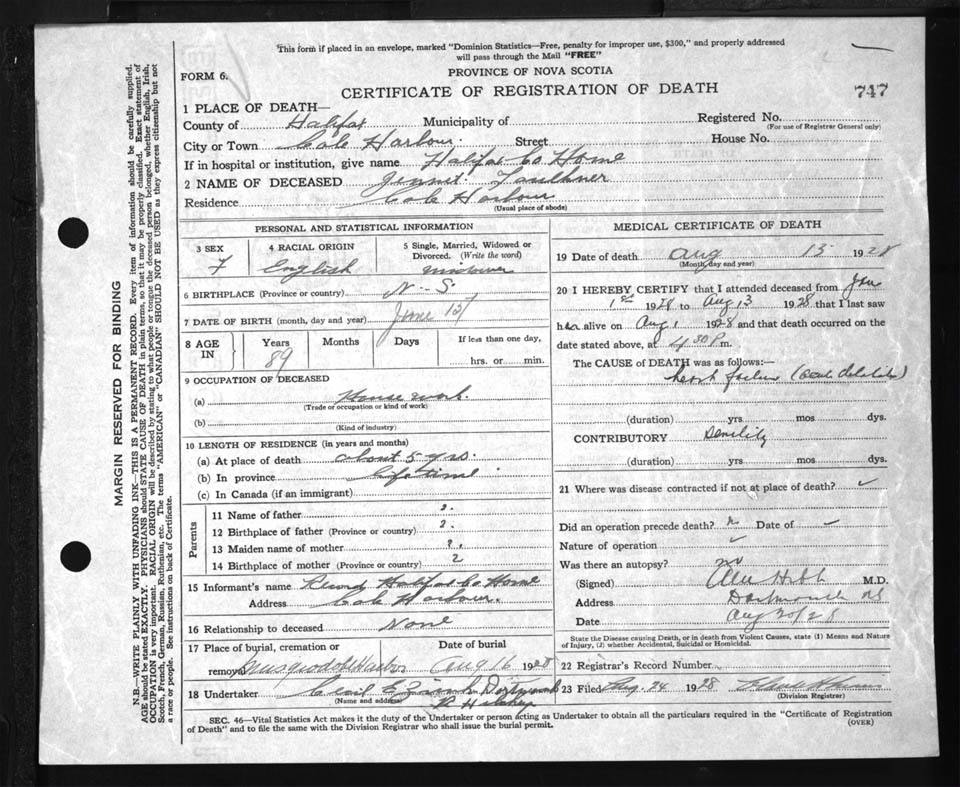 This form if placed in an envelope, marked "Dominion Statistics—Free, penalty for improper use, $300," and properly addressed
will pass through the Mail "FREE"
FORM 6.
PROVINCE OF NOVA SCOTIA
CERTIFICATE OF REGISTRATION OF DEATH
747
1 PLACE OF DEATH—
County of Halifax Municipality of Registered No.
(For use of Registrar General only)
City or Town Cole Harbour Street House No.
If in hospital or institution, give name Halifax Co Home
2 NAME OF DECEASED Jennet Faulkner
Residence Cole Harbour
(Usual place of abode)
PERSONAL AND STATISTICAL INFORMATION
3 SEX 4 RACIAL ORIGIN 5 Single, Married, Widowed or
Divorced. (Write the word)
F English
6 BIRTHPLACE (Province or country) N.S.
7 DATE OF BIRTH (month, day and year) June 15
8 AGE IN Years Months Days If less than one day,
89 hrs. or min.
9 OCCUPATION OF DECEASED
(a) House work
(Trade or occupation or kind of work)
(b)
(Kind of industry)
10 LENGTH OF RESIDENCE (in years and months)
(a) At place of death about 5 yrs.
(b) In province life time
(c) In Canada (if an immigrant)
Parents
11 Name of father ?
12 Birthplace of father (Province or country) ?
13 Maiden name of mother ?
14 Birthplace of mother (Province or country) ?
15 Informant's name Record Halifax Co Home
Address Cole Harbour.
16 Relationship to deceased None
17 Place of burial, cremation or Date of burial
removal Harbor Aug 16 1928
18 Undertaker
(Name and address)
MEDICAL CERTIFICATE OF DEATH
19 Date of death Aug 15 1928
(Month, day and year)
20 I HEREBY CERTIFY that I attended deceased from June
1st 1928 to Aug 13 1928 that I last saw
her alive on Aug 1 1928 and that death occurred on the
date stated above, at 4.30 P.m.
The CAUSE of DEATH was as follows:—
heart failure
(duration) yrs. mos dys.
CONTRIBUTORY Senility
(duration) yrs. mos dys.
21 Where was disease contracted if not at place of death?
Did an operation precede death? Date of
Nature of operation
Was there an autopsy? no
(Signed) M.D.
Address Dartmouth NS
Date Aug 20/28
State the Disease causing Death, or in death from Violent Causes, state (1) Means and Nature
of Injury, (2) whether Accidental, Suicidal or Homicidal.
22 Registrar's Record Number
23 Filed Aug 24 1928
(Division Registrar)
SEC. 46—Vital Statistics Act makes it the duty of the Undertaker or person acting as Undertaker to obtain all the particulars required in the "Certificate of Registration
of Death" and to file the same with the Division Registrar who shall issue the burial permit.
(OVER)
MARGIN RESERVED FOR BINDING
N.B.—WRITE PLAINLY WITH UNFADING INK—THIS IS A PERMANENT RECORD. Every item of information should be carefully supplied.
AGE should be stated EXACTLY. PHYSICIANS should STATE CAUSE OF DEATH in plain terms, so that it may be properly classified. Exact statement of
OCCUPATION is very important. RACIAL ORIGIN will be described by stating to what people or tongue the deceased person belonged, whether English, Irish,
Scotch, French, German, Russian, Ruthenian, etc. The terms "AMERICAN" or "CANADIAN" SHOULD NOT BE USED as they express citizenship but not
a race or people. See instructions on back of Certificate.